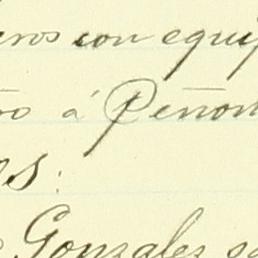 eros con equip
ro á Peñon
os:
Gonzales se